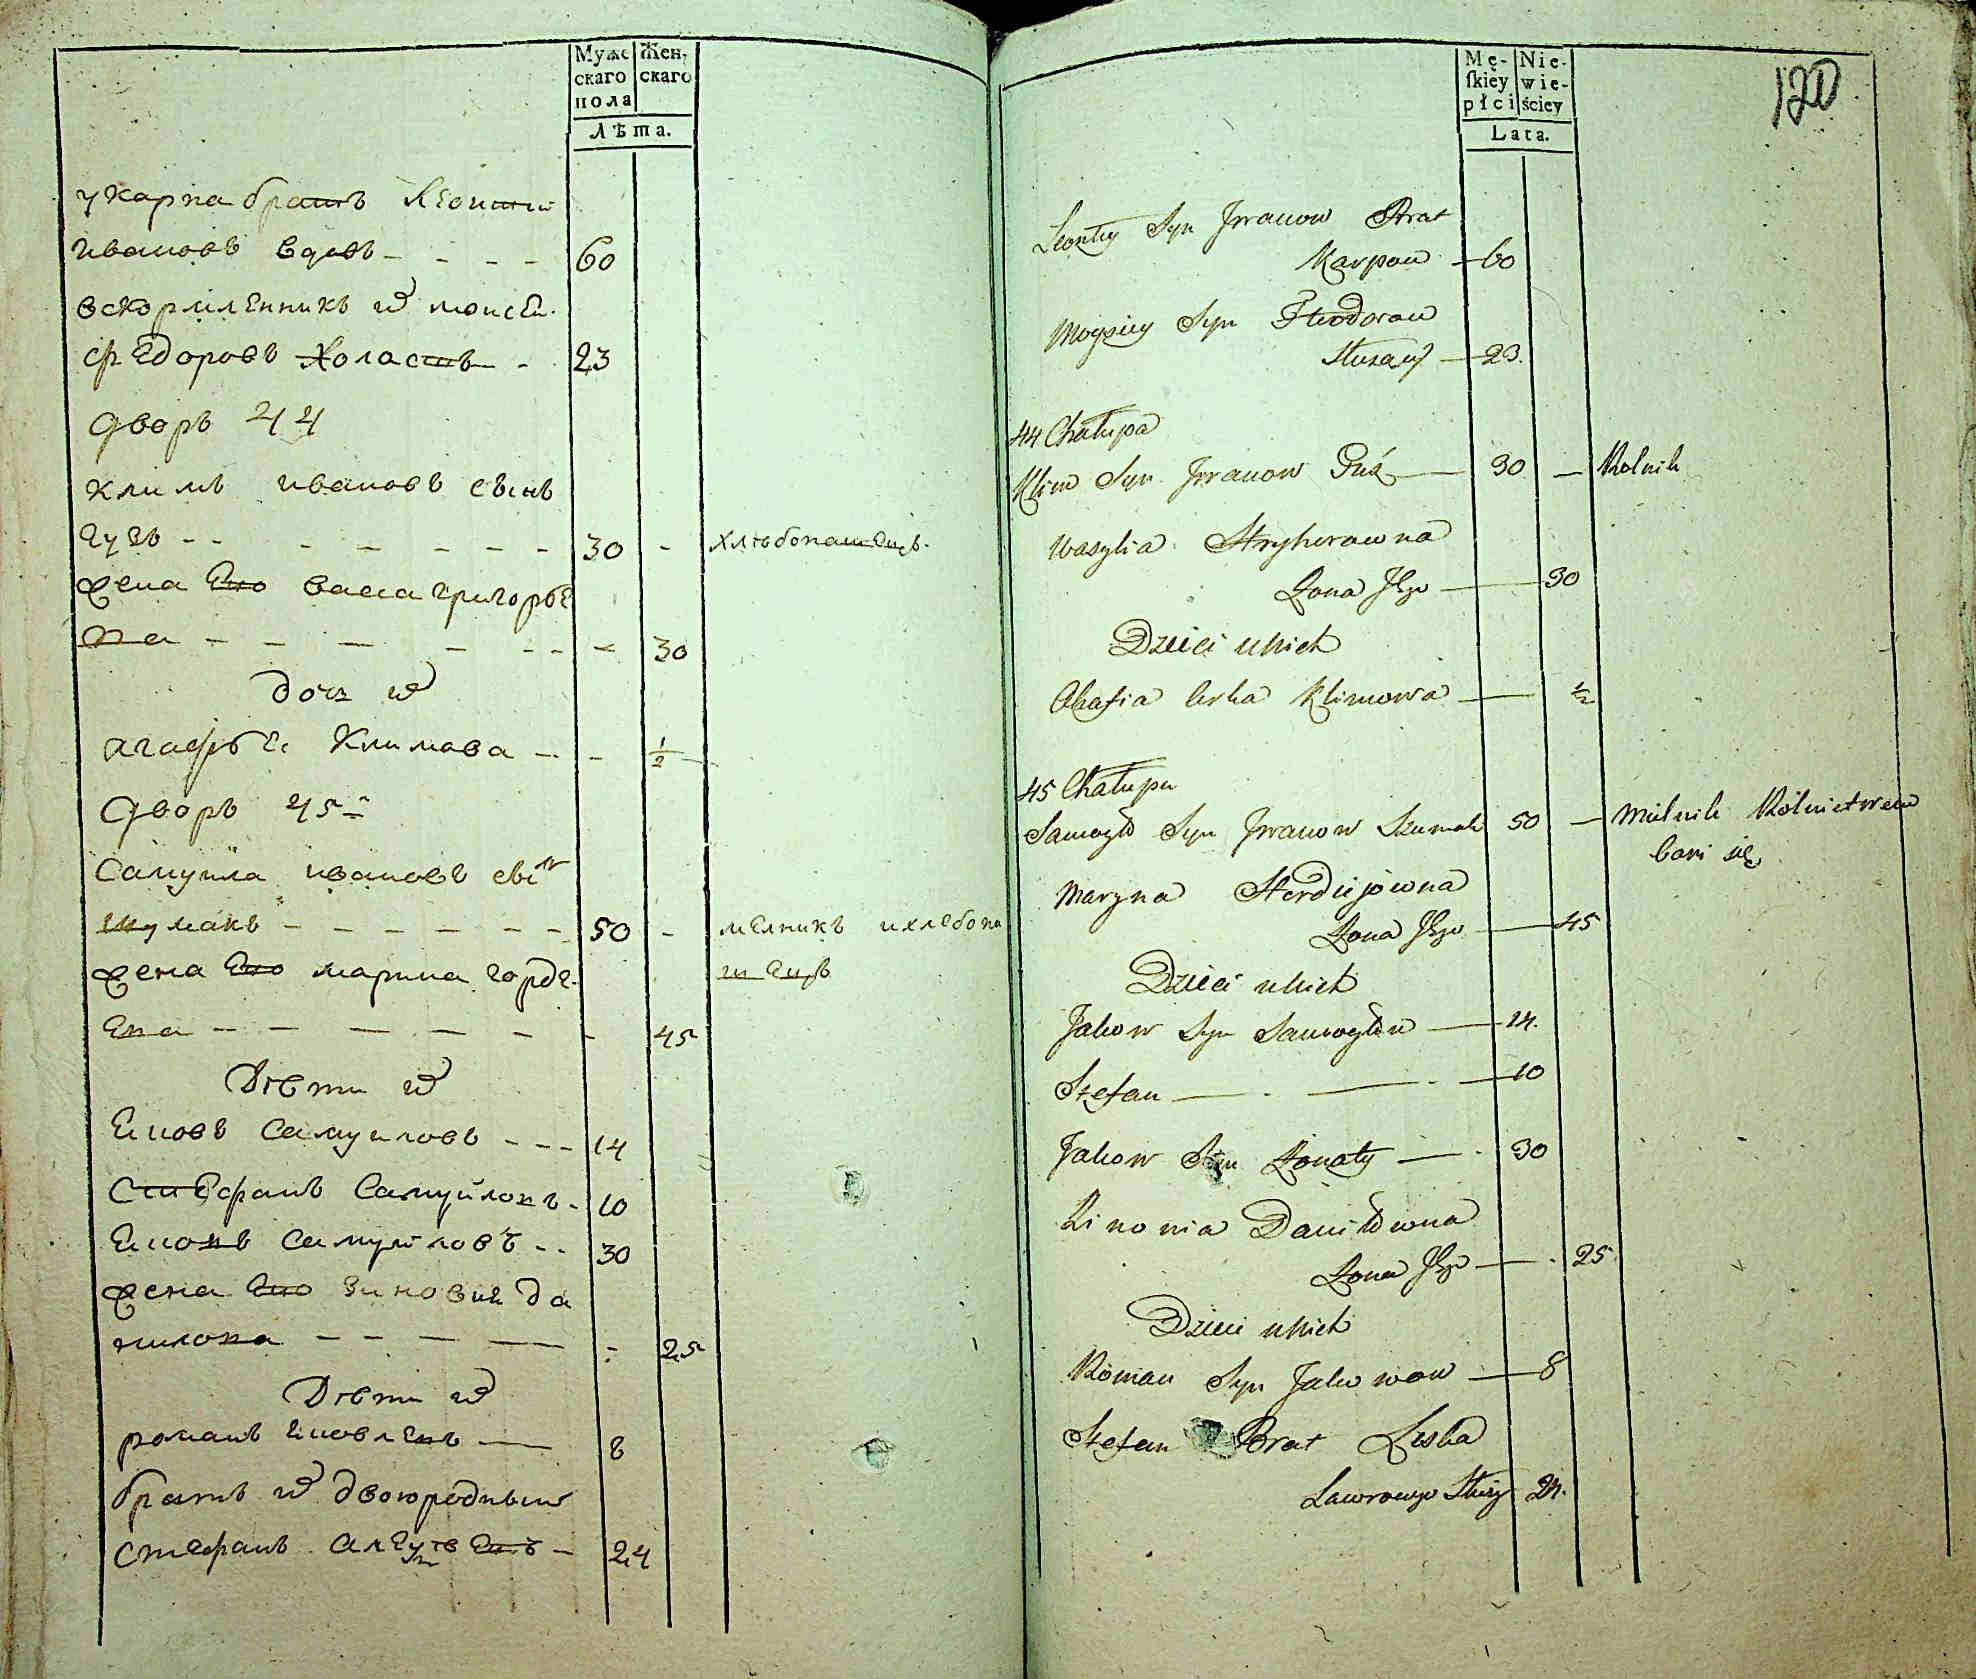 Муже
скаго
пола
Жен,
скаго
Лѣта.
у карпа братъ Леонтий
ивановъ вдовъ - - - - 60
вскормленникъ
федоровъ холастъ - 23
дворъ 44
климъ ивановъ сынъ
гузь - - - - - - - 30 - хлѣбопашецъ.
жена Его васса григорьѣ
на - - - - - - 30
дочь
агафья Климова - - 1/2
дворъ 45
Самуила ивановъ сы н
шумакъ - - - - - - 50 - мелникъ и хлебопа
шецъ
жена Его марина горде-
ена - - - - - - 45
Дѣти
Самуиловъ - - - 14
Стефанъ Самуйловъ - 10
Самуйловъ - - 30
жена Его Зиновия да
нилова - - - - - 25
Дѣти
романъ - 8
братъ двоюродный
Стефанъ - 24
Mę-
skiey
płci
Nie-
wie-
ściey
Lata.
120
Leontiy Syn Jwanow Brat
Karpow - 60
Moysiey Syn Fteodorow
- 23.
44 Chałupa
Klim Syn Jwanow Guź - 30 - Rolnik
Wasylia Hryhorowna
Żona Jego - 30
Dzieci u Nich
Ahafia Corka Klimowa - 1/2
45 Chałupa
Samoyło Syn Jwanow Szumak 50 - Mielnik Rólnictwem
bawi się
Maryna Hordiejówna
Żona Jego - 45
Dzieci u Nich
Jakow Syn Samoyłow - 14.
Stefan - . - . - 10
Jakow Syn Żonaty - . 30
Zinowia Daniłowna
Żona Jego - . 25.
Dzieci u Nich
Roman Syn Jakowow - 8
Stefan Brat
24.